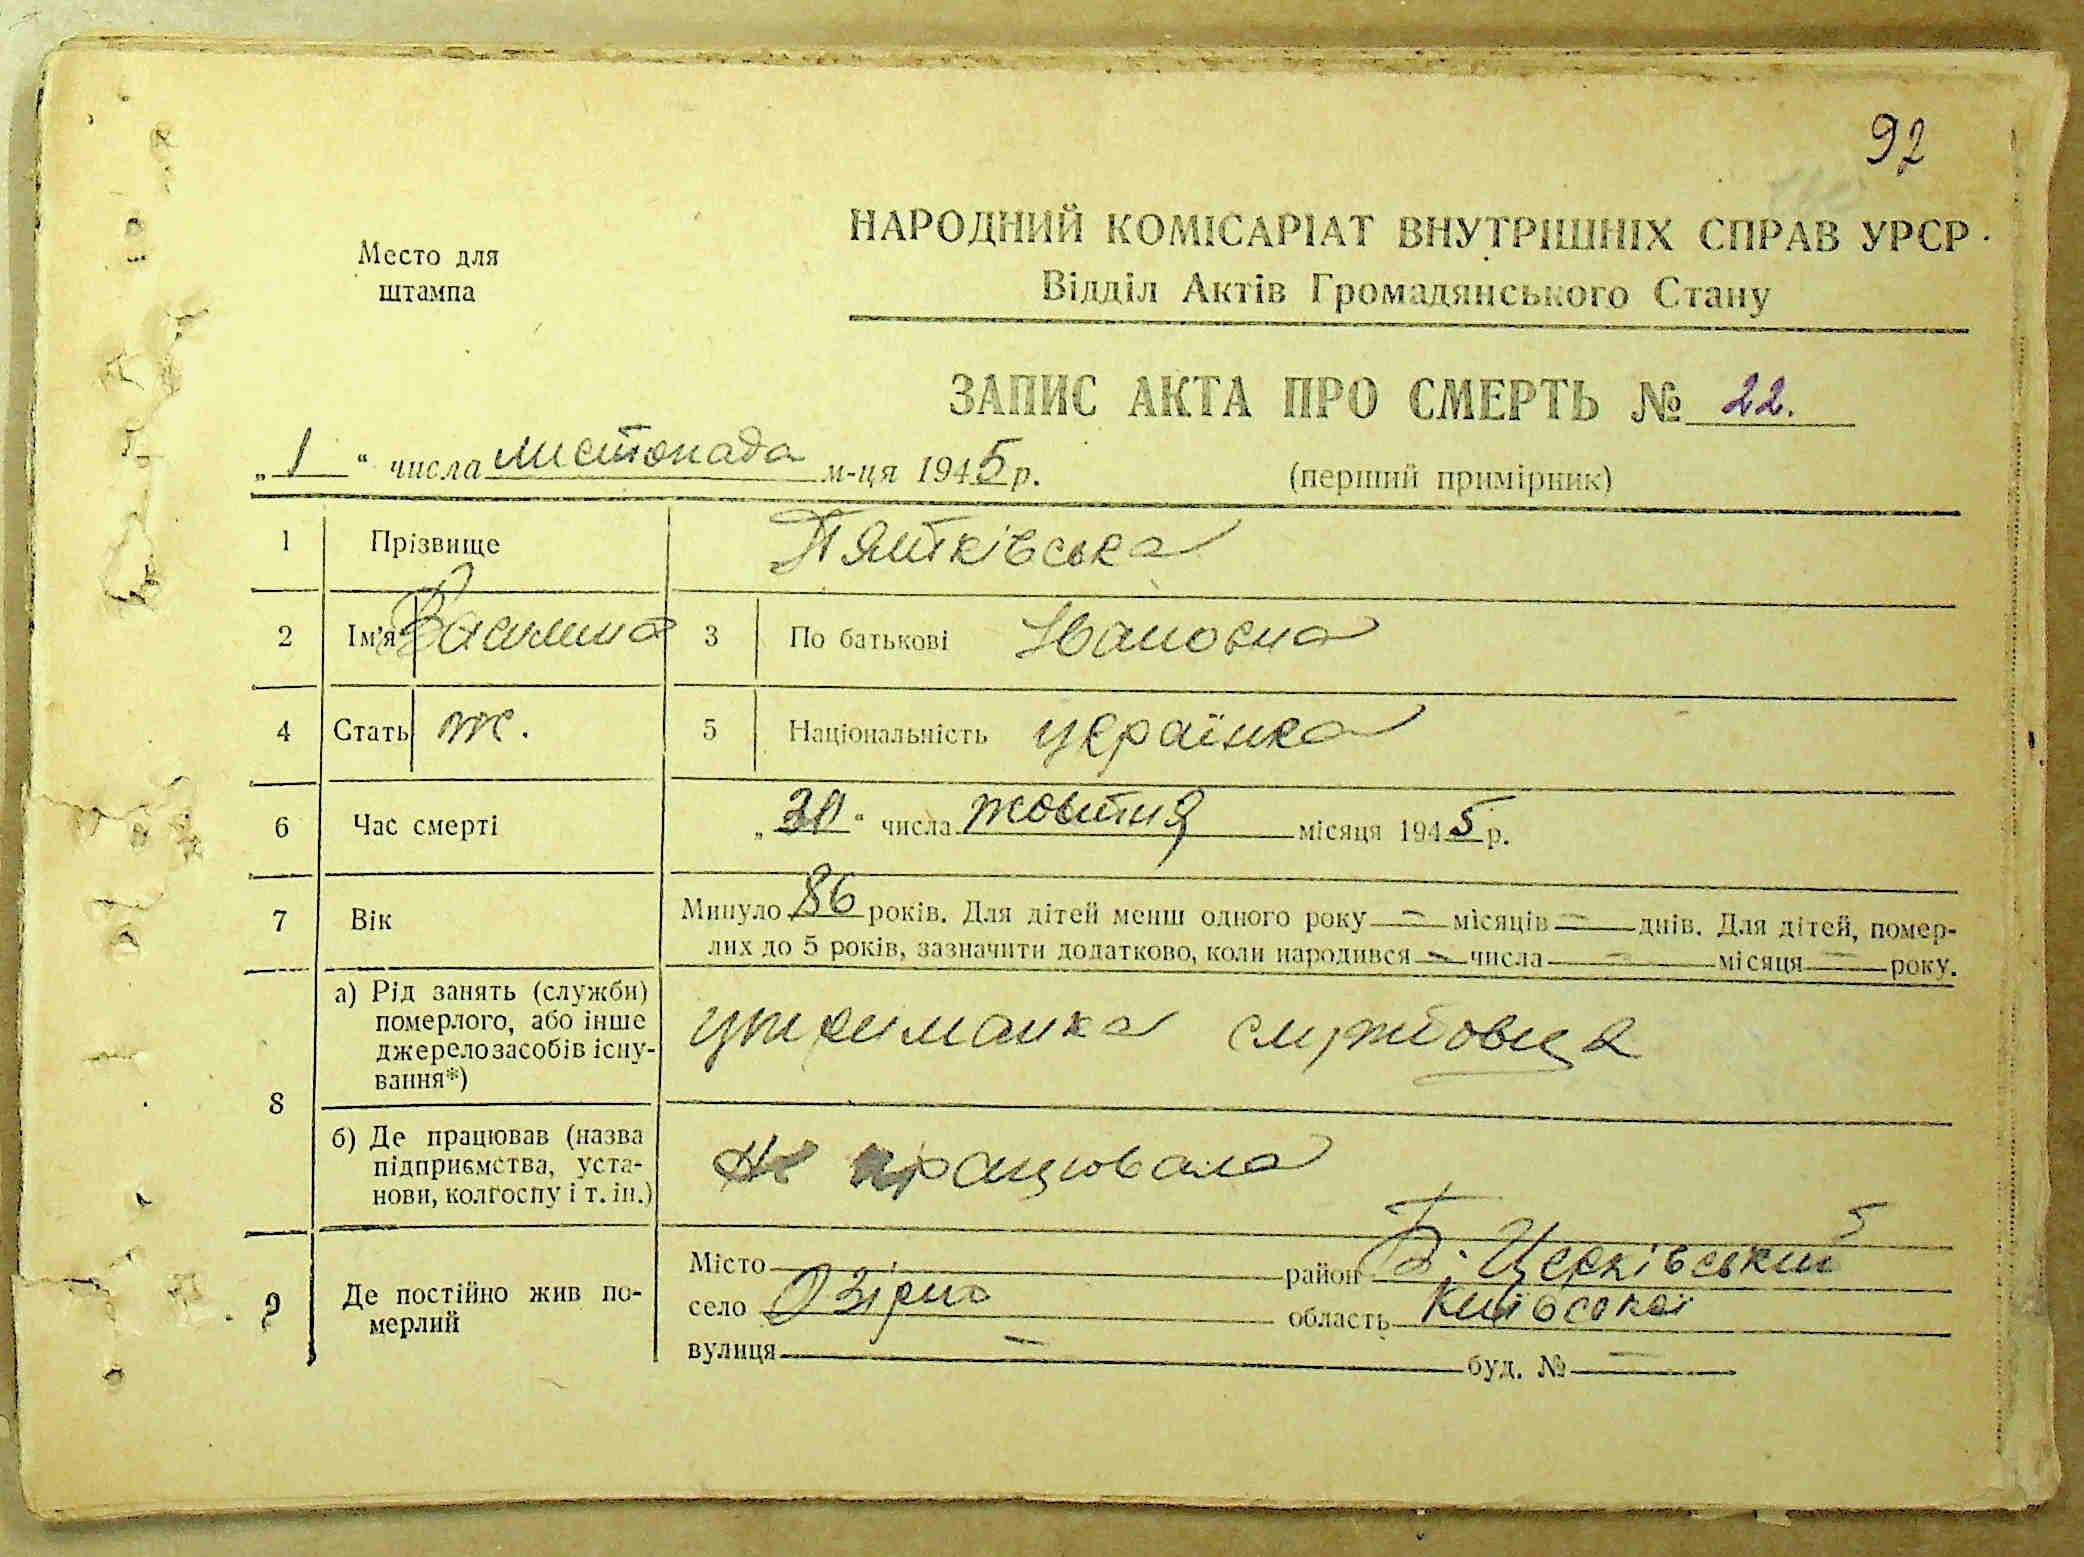 92
Место для
штампа
НАРОДНИЙ КОМІСАРІАТ ВНУТРІШНІХ СПРАВ УРСР
Відділ Актів Громадянського Стану
ЗАПИС АКТА ПРО СМЕРТЬ № 22.
„1“ числа листопада м-ця 1945 р.
(перший примірник)
1 Прізвище Пятківська
2 Ім'я Василина 3 По батькові Івановна
4 Стать ж. 5 Національність українка
6 Час смерті „ “ числа жовтня місяця 1945 р.
7 Вік Минуло 86 років. Для дітей менш одного року — місяців — днів. Для дітей, помер-
лих до 5 років, зазначити додатково, коли народився — числа — місяця — року.
8 а) Рід занять (служби)
померлого, або інше
джерело засобів існу-
вання*)
утриманка службовця
б) Де працював (назва
підприємства, уста-
нови, колгоспу і т. ін.)
не працювала
9 Де постійно жив по-
мерлий
Місто район Б. Церківський
село Озірна область Київської
вулиця — буд. № —